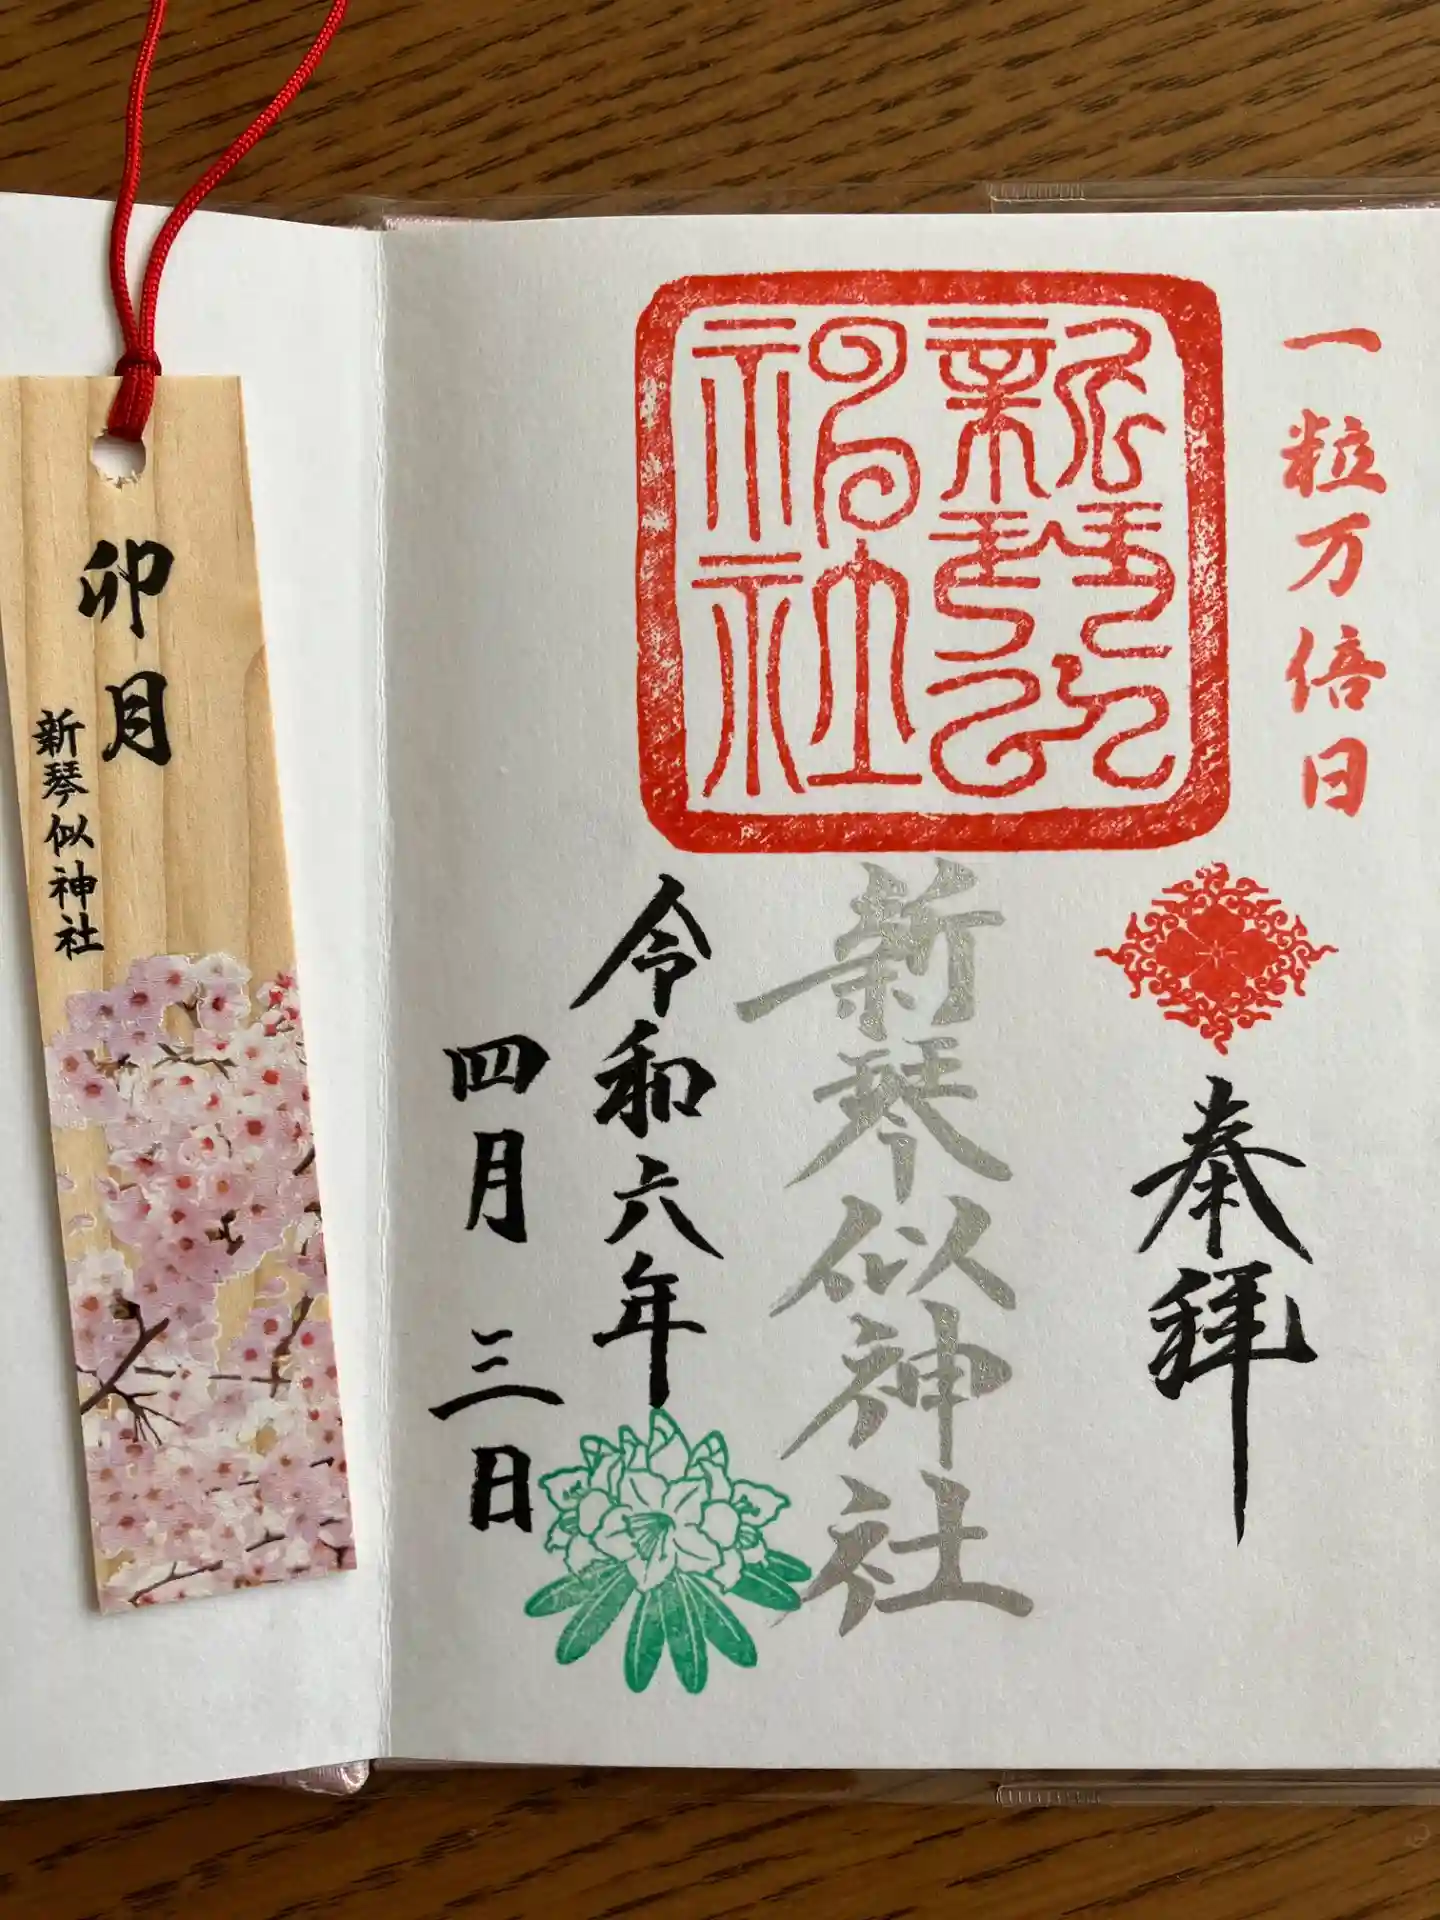 一粒万倍日
奉拝
新琴似神社
新琴似神社
令和六年
四月三日
卯月
新琴似神社